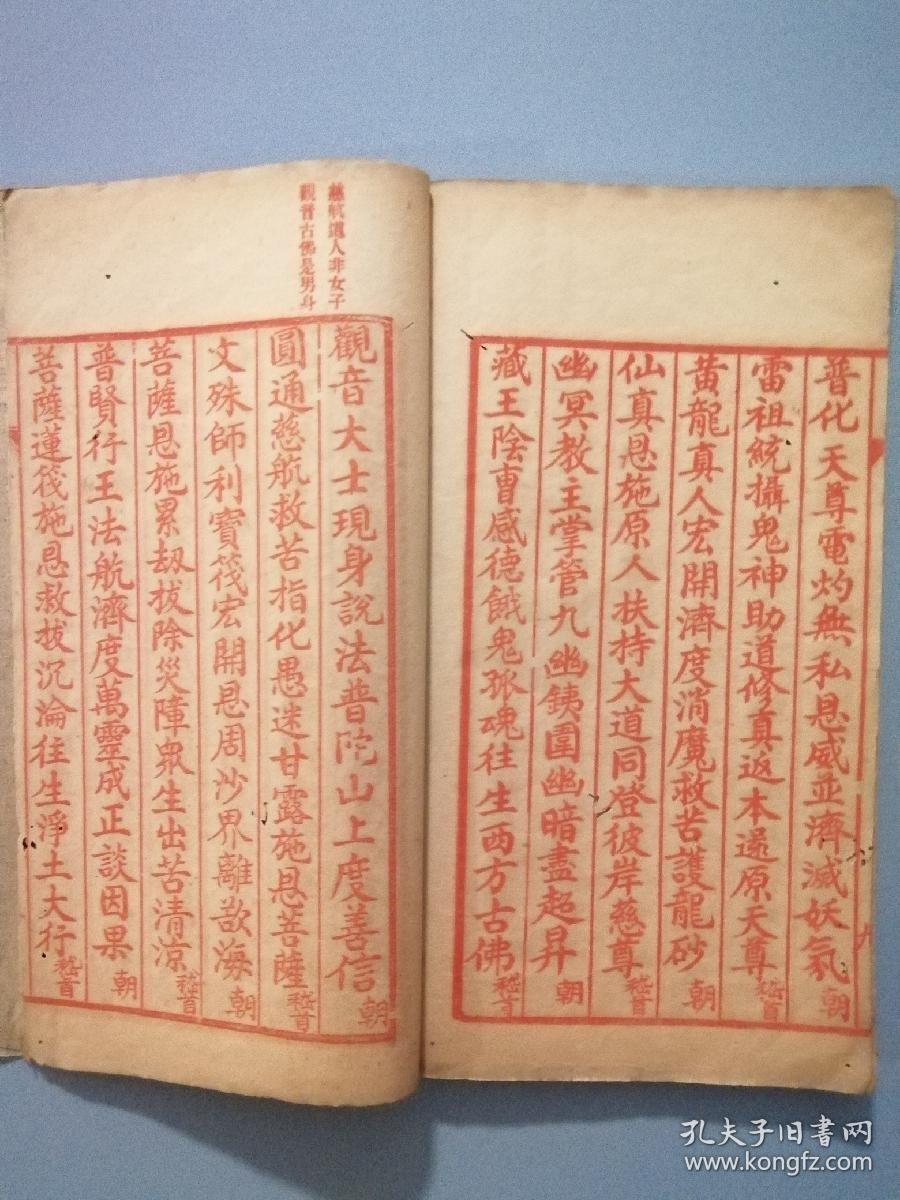 普化天尊電灼無私恩威並濟滅妖氛朝
雷祖統攝鬼神助道修真返本還原天尊嵇首
黃龍真人宏開濟度消魔救苦護龍砂朝
仙真恩施原人扶持大道同登彼岸慈尊嵇首
幽冥教主掌管九幽鉄圍幽暗盡超昇朝
藏王陰曹感德餓鬼孤魂往生西方古佛嵇首
九
慈航道人非女子
觀音古佛是男身
觀音大士現身說法普陀山上度善信朝
圓通慈航救苦指化愚迷甘露施恩菩薩嵇首
文殊師利寶筏宏開恩周沙界離欲海朝
菩薩恩施累劫拔除災障衆生出苦清涼嵇首
普賢行王法航濟度萬靈成正談因果朝
菩薩蓮筏施恩救拔沉淪往生淨土大行嵇首
孔夫子旧书网
www.kongfz.com